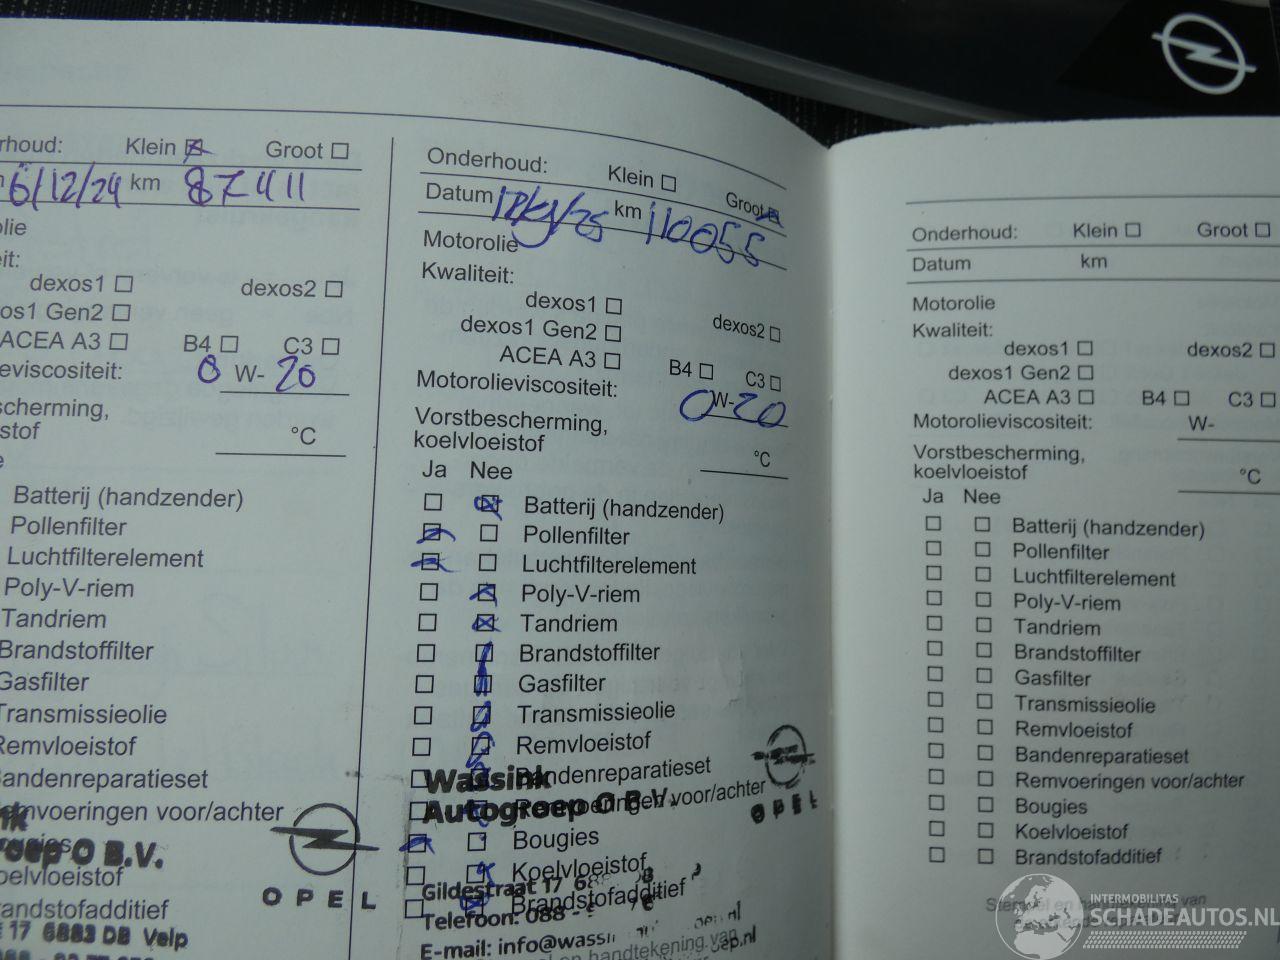 rhoud: Klein Groot
6/12/24 km 87411
olie
it:
dexos1 dexos2
xos1 Gen2
ACEA A3 B4 C3
eviscositeit: 0 W- 20
scherming,
stof °C
e
Batterij (handzender)
Pollenfilter
Luchtfilterelement
Poly-V-riem
Tandriem
Brandstoffilter
Gasfilter
Transmissieolie
Remvloeistof
Bandenreparatieset
Remvoeringen voor/achter
Bougies
roep O B.V.
oelvloeistof
OPEL
randstofadditief
17 6883 DB Velp
Onderhoud: Klein Groot
Datum km 110055
Motorolie
Kwaliteit:
dexos1 dexos2
dexos1 Gen2
ACEA A3 B4 C3
Motorolieviscositeit: 0 W- 20
Vorstbescherming,
koelvloeistof °C
Ja Nee
Batterij (handzender)
Pollenfilter
Luchtfilterelement
Poly-V-riem
Tandriem
Brandstoffilter
Gasfilter
Transmissieolie
Remvloeistof
Bandenreparatieset
Wassink
Remvoeringen voor/achter
Autogroep O B.V.
OPEL
Bougies
Koelvloeistof
Gildestraat 17
Brandstofadditief
Telefoon: 088 -
E-mail: info@wassin
en handtekening van
Onderhoud: Klein Groot
Datum km
Motorolie
Kwaliteit:
dexos1 dexos2
dexos1 Gen2
ACEA A3 B4 C3
Motorolieviscositeit: W-
Vorstbescherming,
koelvloeistof °C
Ja Nee
Batterij (handzender)
Pollenfilter
Luchtfilterelement
Poly-V-riem
Tandriem
Brandstoffilter
Gasfilter
Transmissieolie
Remvloeistof
Bandenreparatieset
Remvoeringen voor/achter
Bougies
Koelvloeistof
Brandstofadditief
INTERMOBILITAS
SCHADEAUTOS.NL